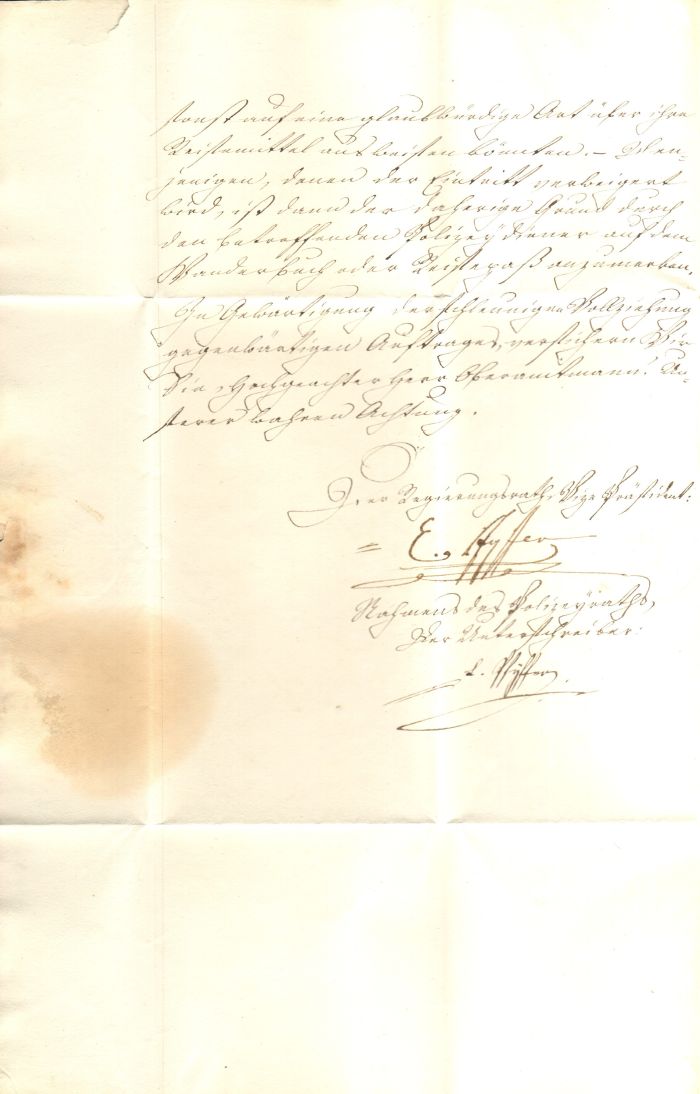 sonst auf eine glaubwürdige Art über ihre
Reisemittel ausweisen könnten. – Den-
jenigen, denen der Eintritt verweigert
wird, ist dann der daherige Grund durch
den betreffenden Polizeydiener auf dem
Wanderbuch oder Reisepaß anzumerken.
In Gewärtigung der schleunigen Vollziehung
gegenwärtigen Auftrages, versichern Wir
Sie, Hochgeachter Herr Oberamtmann! Un-
serer wahren Achtung.
Der Regierungsrath, Vize Präsident:
= E. Pfyffer
Nahmens des Polizeyraths,
Der Unterschreiber:
L. Pfyffer.